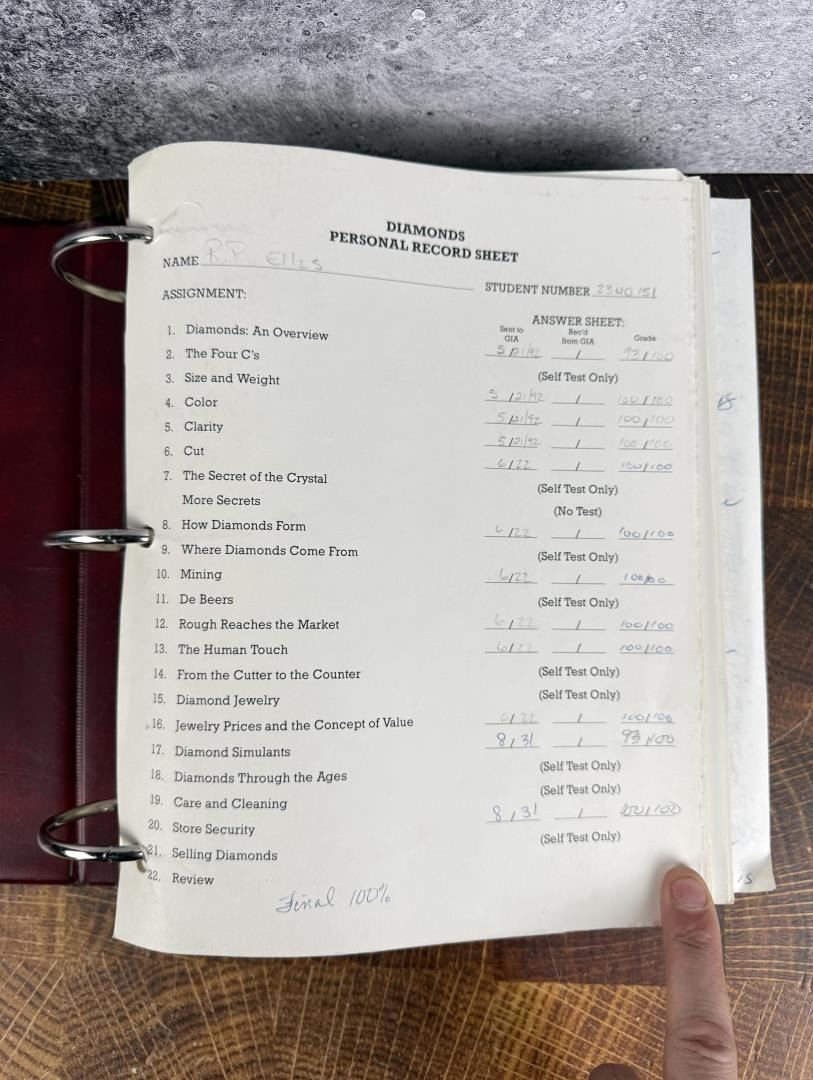 DIAMONDS
PERSONAL RECORD SHEET
NAME R.P. Ellis
STUDENT NUMBER 2340151
ASSIGNMENT:
ANSWER SHEET:
Sent to GIA Rec'd from GIA Grade
1. Diamonds: An Overview 5/21/92 / 93/100
2. The Four C's (Self Test Only)
3. Size and Weight 5/21/92 / 100/100
4. Color 5/21/92 / 100/100
5. Clarity 5/21/92 / 100/100
6. Cut 6/22 / 100/100
7. The Secret of the Crystal (Self Test Only)
More Secrets (No Test)
8. How Diamonds Form 6/22 / 100/100
9. Where Diamonds Come From (Self Test Only)
10. Mining 6/22 / 100/100
11. De Beers (Self Test Only)
12. Rough Reaches the Market 6/22 / 100/100
13. The Human Touch 6/22 / 100/100
14. From the Cutter to the Counter (Self Test Only)
15. Diamond Jewelry (Self Test Only)
16. Jewelry Prices and the Concept of Value 6/22 / 100/100
17. Diamond Simulants 8/31 / 93/100
18. Diamonds Through the Ages (Self Test Only)
19. Care and Cleaning (Self Test Only)
20. Store Security 8/31 / 100/100
21. Selling Diamonds (Self Test Only)
22. Review
Final 100%